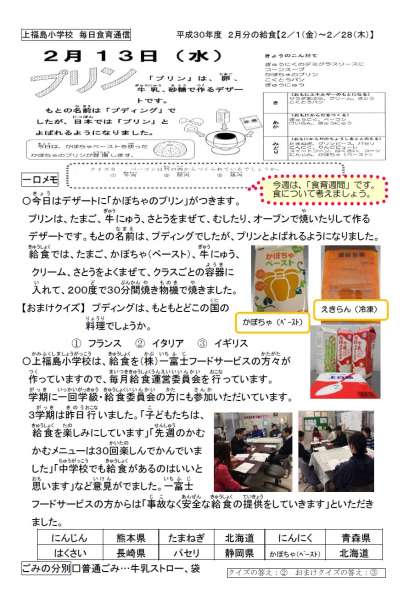 上福島小学校 毎日食育通信
平成30年度 2月分の給食【2/1(金)～2/28(木)】
2月13日（水）
プリン
「プリン」は、卵、
牛乳、砂糖で作るデザー
トです。
もとの名前は「プディング」で
したが、日本では「プリン」と
よばれるようになりました。
今日は、かぼちゃペーストを使った
かぼちゃのプリンが登場します。
きょうのこんだて
コーンスープ
かぼちゃのプリン
こくとうパン
ぎゅうにゅう
き
あか
みどり
一口メモ
今週は、「食育週間」です。
食について考えましょう。
〇今日はデザートに「かぼちゃのプリン」がつきます。
プリンは、たまご、牛にゅう、さとうをまぜて、むしたり、オーブンで焼いたりして作る
デザートです。もとの名前は、プディングでしたが、プリンとよばれるようになりました。
給食では、たまご、かぼちゃ(ペースト)、牛にゅう、
クリーム、さとうをよくまぜて、クラスごとの容器に
入れて、200度で30分間焼き物機で焼きました。
【おまけクイズ】 プディングは、もともとどこの国の
料理でしょうか。
① フランス ② イタリア ③ イギリス
かぼちゃ(ペースト)
えきらん（冷凍）
〇上福島小学校は、給食を(株)一富士フードサービスの方々が
作っていますので、毎月給食運営委員会を行っています。
学期に一回学級・給食委員会の方にも参加いただいています。
3学期は昨日行いました。「子どもたちは、
給食を楽しみにしています」「先週のかむ
かむメニューは30回楽しんでかんでいま
した」「中学校でも給食があるのはいいと
思います」など意見がでました。一富士
フードサービスの方からは「事故なく安全な給食の提供をしていきます」といただき
ました。
にんじん 熊本県 たまねぎ 北海道 にんにく 青森県
はくさい 長崎県 パセリ 静岡県 かぼちゃ(ペースト) 北海道
ごみの分別□普通ごみ…牛乳ストロー、袋
クイズの答え：② おまけクイズの答え：③